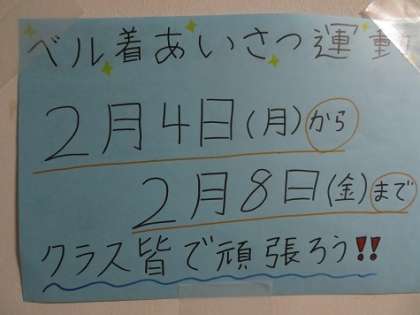 ベル着あいさつ運動
2月4日(月)から
2月8日(金)まで
クラス皆で頑張ろう!!